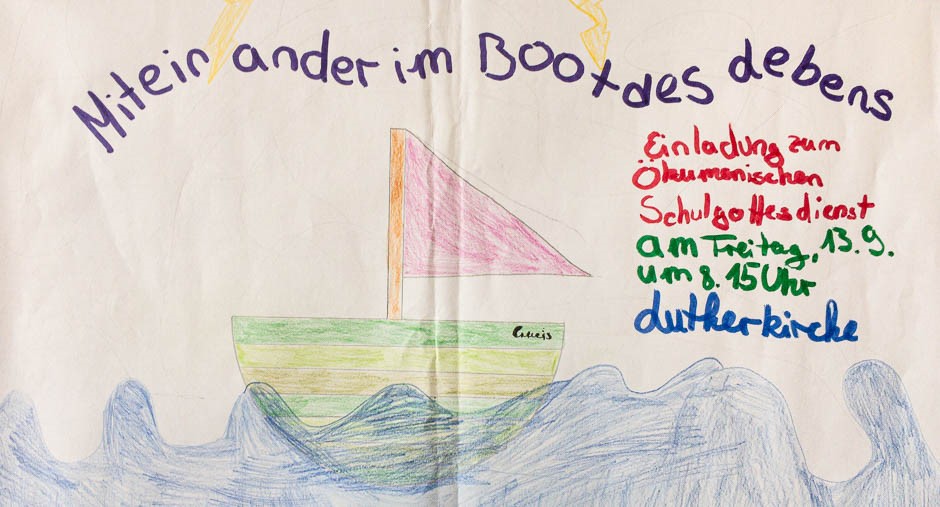 Miteinander im Boot des Lebens
Einladung zum
Ökumenischen
Schulgottesdienst
am Freitag, 13.9.
um 8.15 Uhr
Lutherkirche